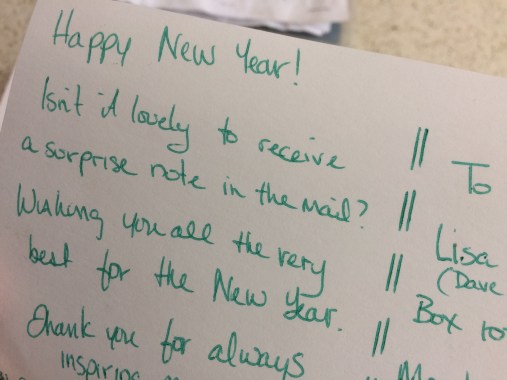 Happy New Year!
Isn't it lovely to receive
a surprise note in the mail?
Wishing you all the very
best for the New Year.
Thank you for always
inspiring
To
Lisa
(Dave
Box 10